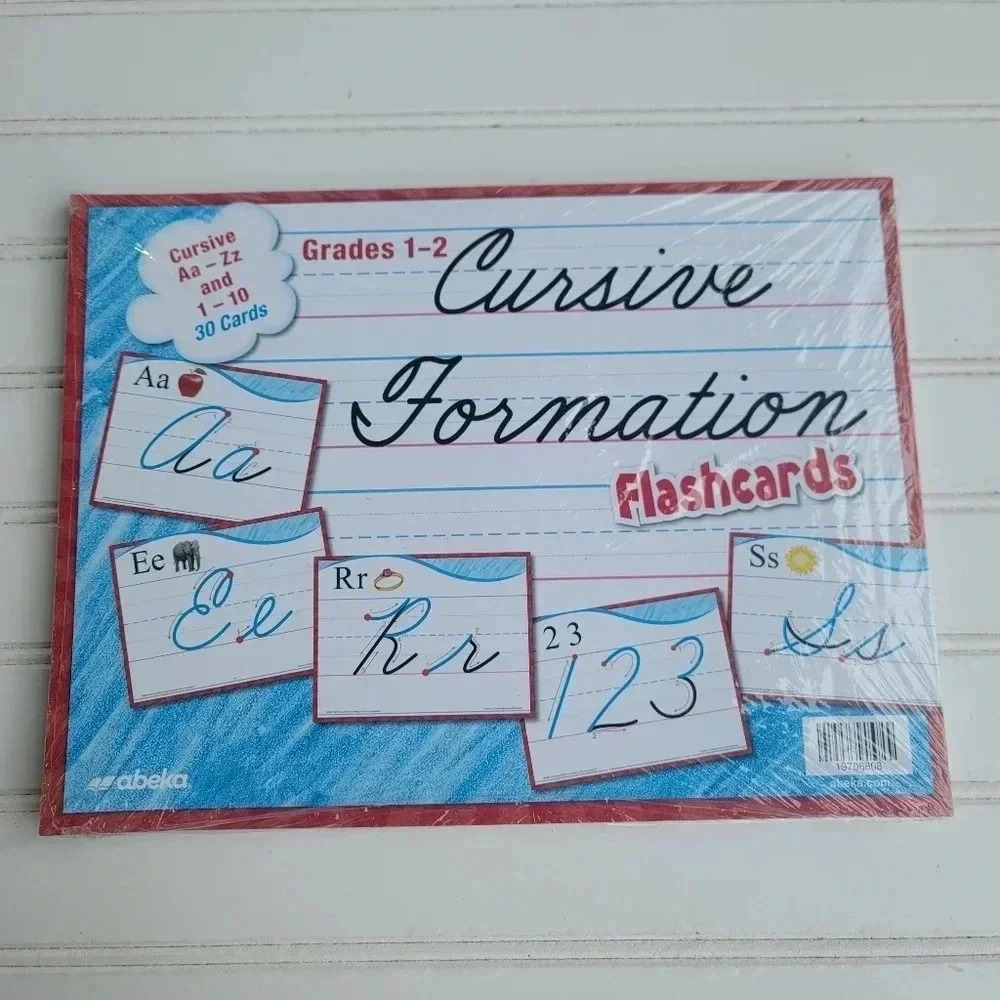 Cursive
Aa – Zz
and
1 – 10
30 Cards
Grades 1–2
Cursive
Formation
Flashcards
Aa
Aa
Ee
Ee
Rr
Rr
2 3
123
Ss
Ss
abeka
19706808
abeka.com